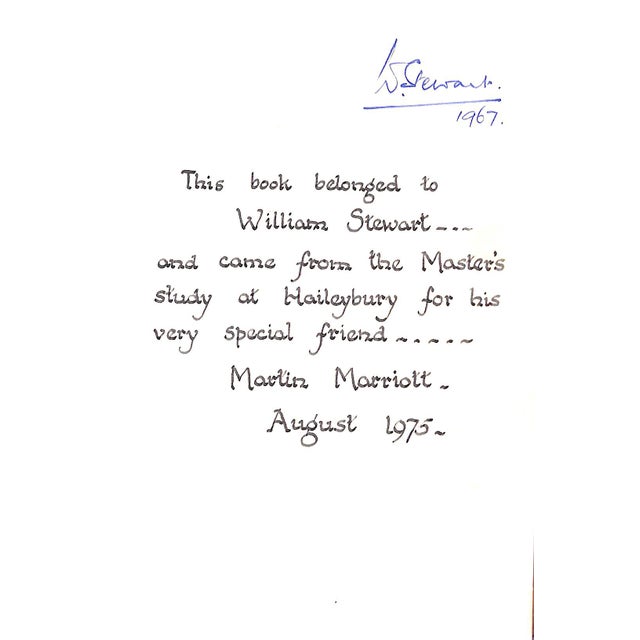 W. Stewart.
1967.
This book belonged to
William Stewart---
and came from the Master's
study at Haileybury for his
very special friend-----
Martin Marriott-
August 1975-